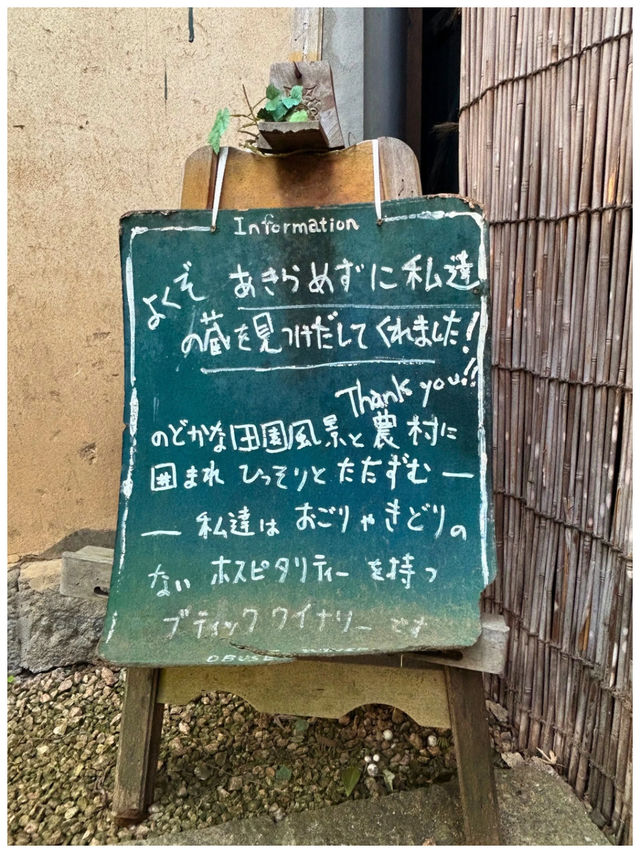 Information
よくぞ あきらめずに私達
の蔵を見つけだしてくれました!
Thank you!!
のどかな田園風景と農村に
囲まれ ひっそりとたたずむー
ー 私達は おごりやきどりの
ない ホスピタリティーを持つ
ブティックワイナリーです
OBUSE